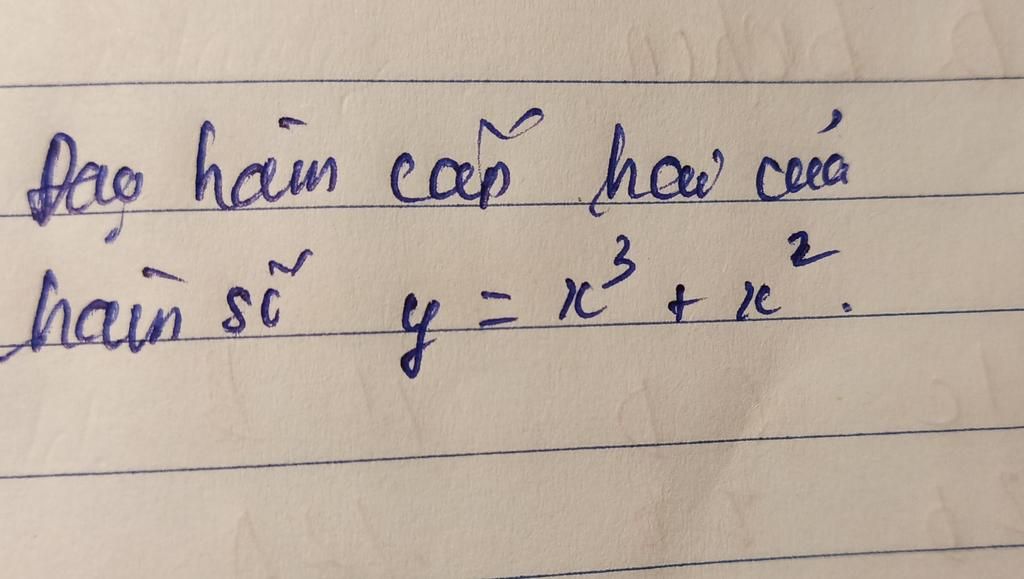 Đạo hàm cấp hai của
hàm số y = x³ + x².